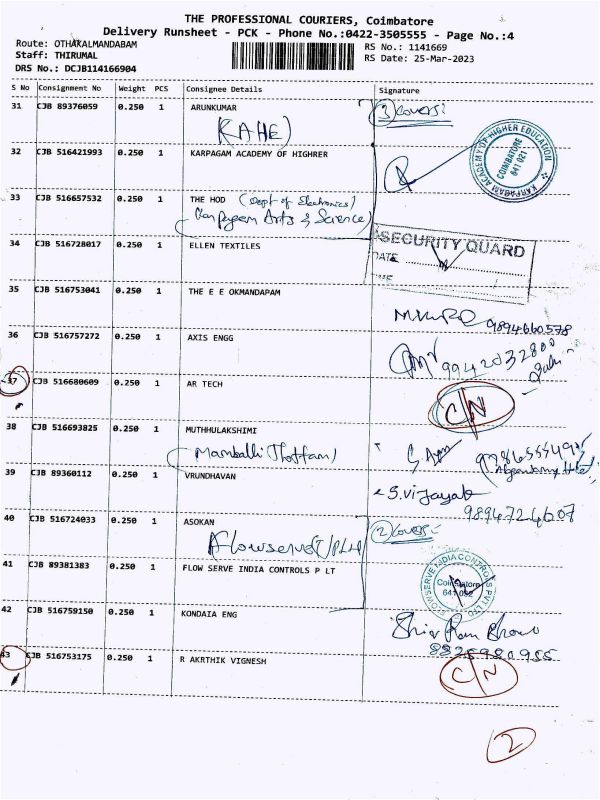 THE PROFESSIONAL COURIERS, Coimbatore
Delivery Runsheet - PCK - Phone No.:0422-3505555 - Page No.:4
Route: OTHAKALMANDABAM
RS No.: 1141669
Staff: THIRUMAL
RS Date: 25-Mar-2023
DRS No.: DCJB114166904
S No Consignment No Weight PCS Consignee Details Signature
31 CJB 89376059 0.250 1 ARUNKUMAR
(KAHE)
3 covers
32 CJB 516421993 0.250 1 KARPAGAM ACADEMY OF HIGHRER
KARPAGAM ACADEMY OF HIGHER EDUCATION
COIMBATORE
641 021
33 CJB 516657532 0.250 1 THE HOD (Dept of Electronics)
(Karpagam Arts & Science)
34 CJB 516728017 0.250 1 ELLEN TEXTILES
SECURITY QUARD
DATE
35 CJB 516753041 0.250 1 THE E E OKMANDAPAM
9894660578
36 CJB 516757272 0.250 1 AXIS ENGG
9942032800
37 CJB 516680609 0.250 1 AR TECH
C/N
38 CJB 516693825 0.250 1 MUTHHULAKSHIMI
(Mamballi Thottam)
39 CJB 89360112 0.250 1 VRUNDHAVAN
S.Vijayak
9894724607
40 CJB 516724033 0.250 1 ASOKAN
Flowserve
2 covers
41 CJB 89381383 0.250 1 FLOW SERVE INDIA CONTROLS P LT
FLOWSERVE INDIA CONTROLS PVT LTD
Coimbatore
641 032
42 CJB 516759150 0.250 1 KONDAIA ENG
Shiv Ram
43 CJB 516753175 0.250 1 R AKRTHIK VIGNESH
C/N
2